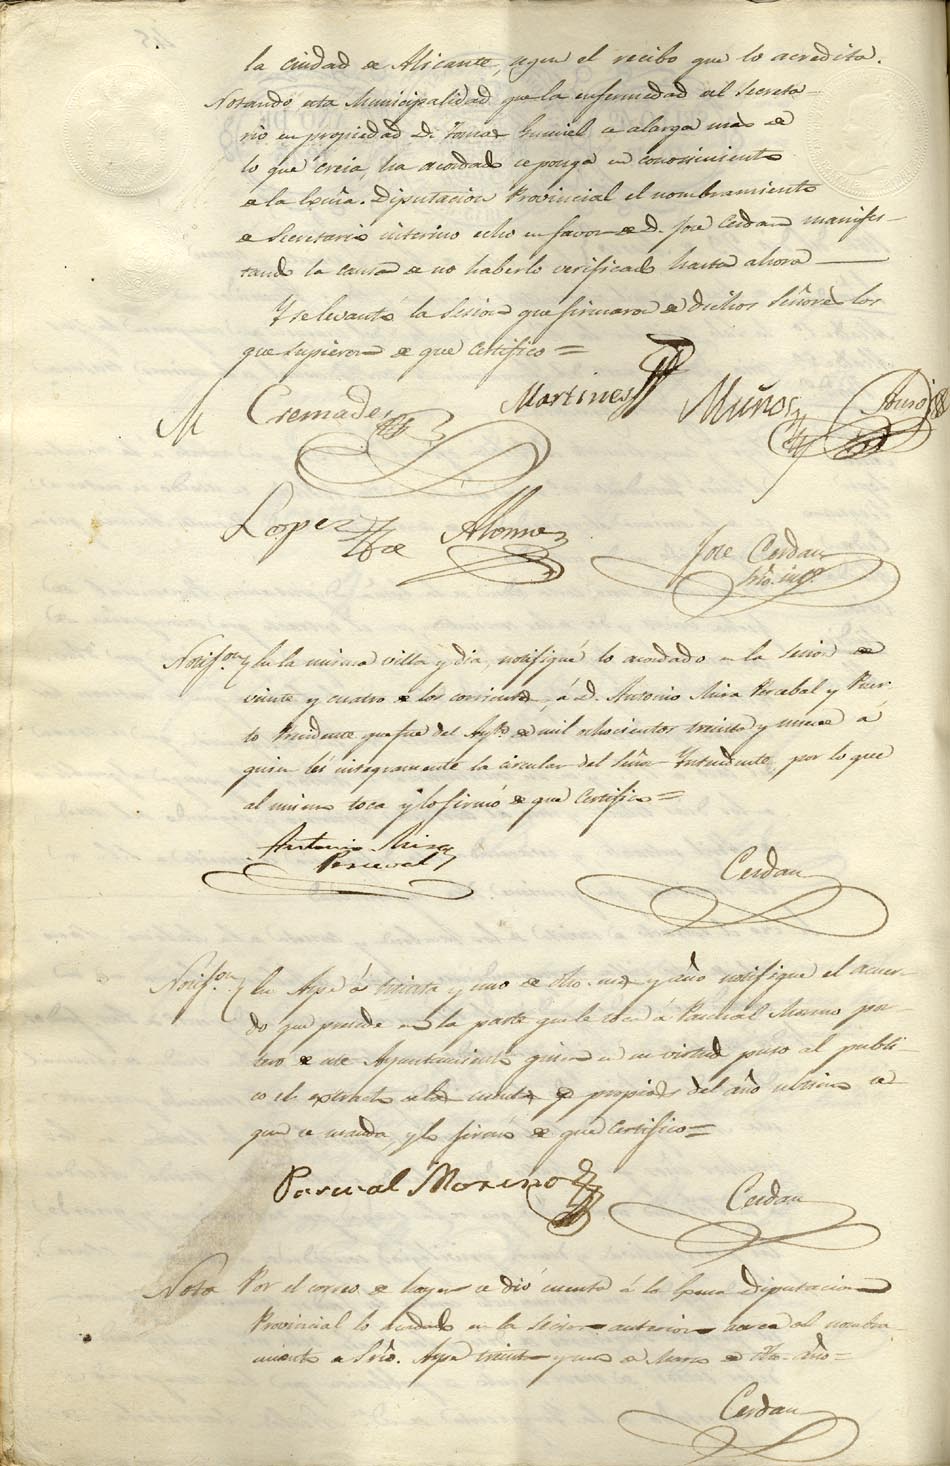 la ciudad de Alicante, segun el recibo que lo acredita.
Notando esta Municipalidad que la enfermedad del Secreta-
rio en propiedad D. Tomas Gumiel se alarga mas de
lo que creia, ha acordado se ponga en conocimiento
de la Exma. Diputacion Provincial el nombramiento
de Secretario interino echo en favor de D. Jose Cerdan manifes-
tando la causa de no haberlo verificado hasta ahora
Y se levantó la Sesion que firmaron de dichos Señores los
que supieron de que Certifico =
M Cremades Martines Muños
Lopez Alonso
Jose Cerdan
Srio. into.
Notifon. En la misma villa y dia, notifiqué lo acordado en la Sesion de
veinte y cuatro de los corrientes, á D. Antonio Mira Percebal y Puer-
to Presidente que fue del Ayto. de mil ochocientos treinta y nueve á
quien leí integramente la circular del Señor Intendente por lo que
al mismo toca y lo firmó de que Certifico =
Antonio Mira
Perceval
Cerdan
Notifon. En Aspe á treinta y uno de dho. mes y año notifique el acuer-
do que precede en la parte que le toca á Pascual Moreno por-
tero de este Ayuntamiento quien en su virtud puso al publi-
co el extracto de las cuentas de propios del año ultimo se-
gun se manda, y lo firmó de que Certifico =
Pascual Moreno
Cerdan
Nota Por el correo de hoy se dió cuenta á la Exma Diputacion
Provincial lo acordado en la Sesion anterior acerca del nombra-
miento de Srio. Aspe treinta y uno de Marzo de dho. año =
Cerdan